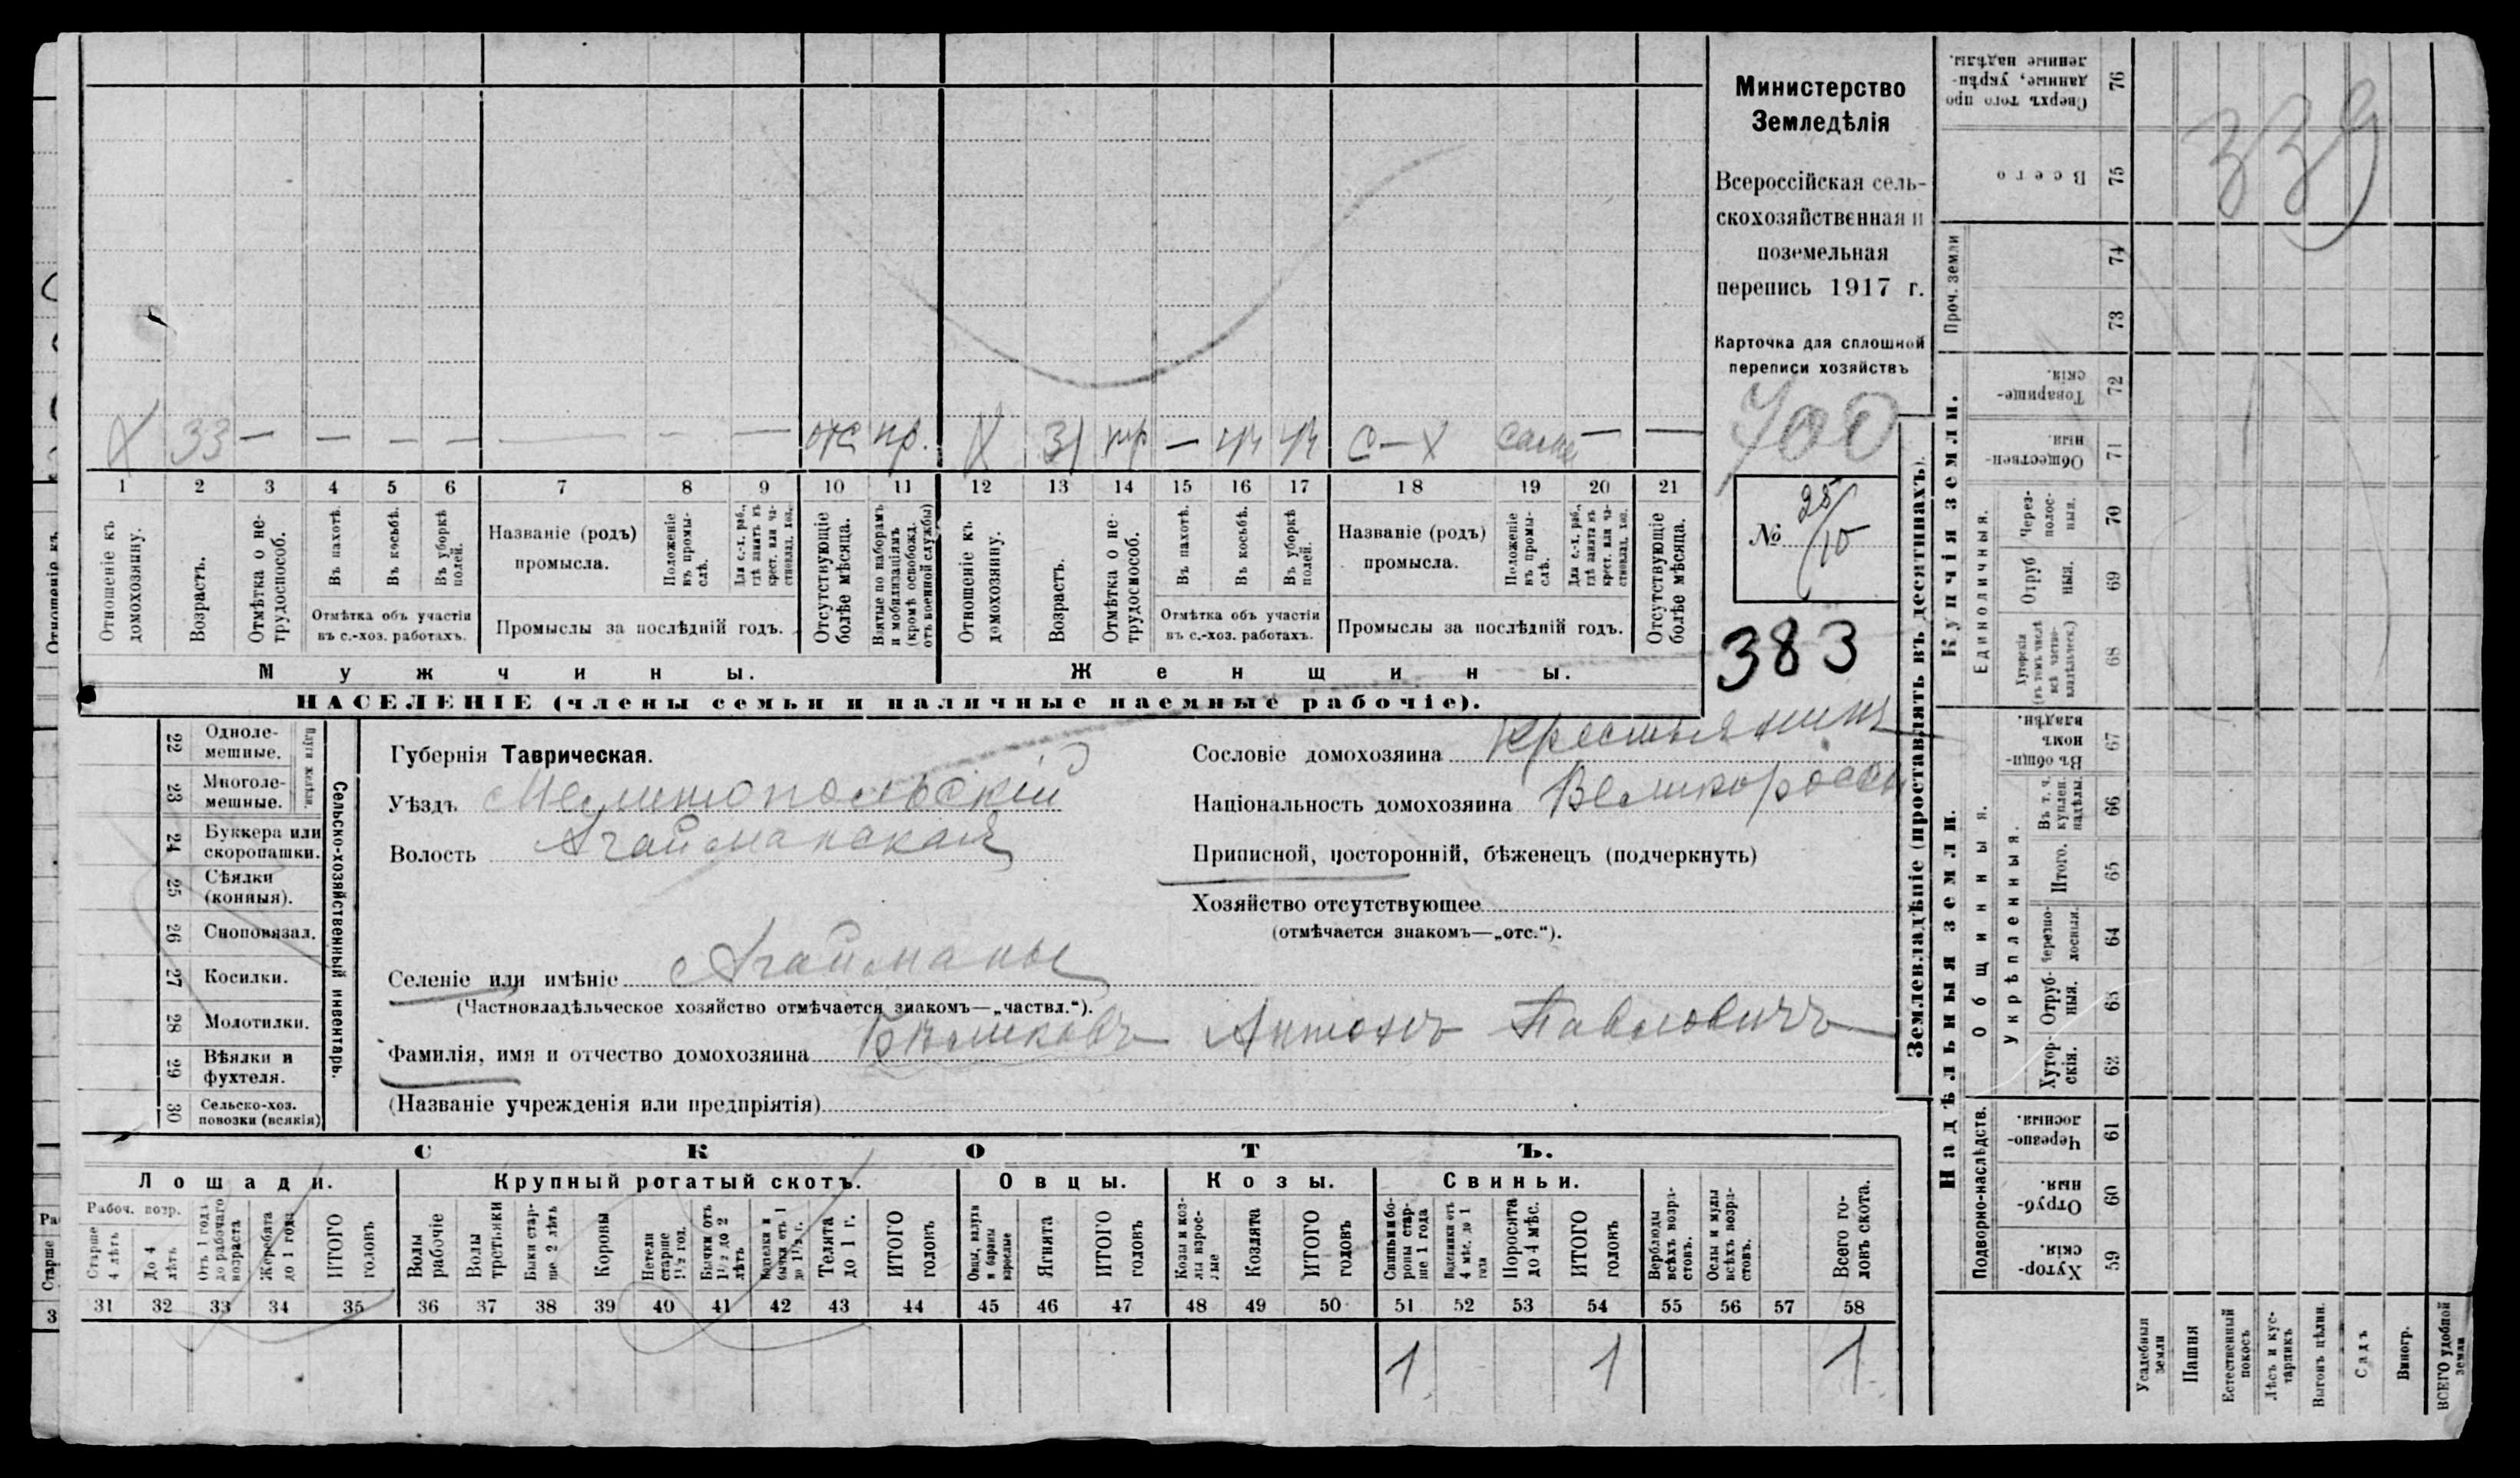 Министерство
Земледѣлія
Всероссійская сель-
скохозяйственная и
поземельная
перепись 1917 г.
Карточка для сплошной
переписи хозяйствъ
700
№ 25/10
383
339
X 33 — — — — — — — отс пр. X 31 пр — чп чп С—Х сам — —
1 2 3 4 5 6 7 8 9 10 11 12 13 14 15 16 17 18 19 20 21
Отношеніе къ домохозяину.
Возрастъ.
Отмѣтка о не-трудоспособ.
Въ пахотѣ.
Въ косьбѣ.
Въ уборкѣ полей.
Отмѣтка объ участіи
въ с.-хоз. работахъ.
Названіе (родъ)
промысла.
Положеніе въ промы-слѣ.
Для с.-х. раб., гдѣ занятъ въ крест. или ча-стновлад. хоз.
Промыслы за послѣдній годъ.
Отсутствующіе болѣе мѣсяца.
Взятые по наборамъ и мобилизаціямъ (кромѣ освобожд. отъ военной службы)
Отношеніе къ домохозяину.
Возрастъ.
Отмѣтка о не-трудоспособ.
Въ пахотѣ.
Въ косьбѣ.
Въ уборкѣ полей.
Отмѣтка объ участіи
въ с.-хоз. работахъ.
Названіе (родъ)
промысла.
Положеніе въ промы-слѣ.
Для с.-х. раб., гдѣ занята въ крест. или ча-стновлад. хоз.
Промыслы за послѣдній годъ.
Отсутствующіе болѣе мѣсяца.
Мужчины. Женщины.
НАСЕЛЕНІЕ (члены семьи и наличные наемные рабочіе).
22 Одноле-мешные.
23 Многоле-мешные.
Плуги желѣзн.
24 Буккера или скоропашки.
25 Сѣялки (конныя).
26 Сноповязал.
27 Косилки.
28 Молотилки.
29 Вѣялки и фухтеля.
30 Сельско-хоз. повозки (всякія)
Сельско-хозяйственный инвентарь.
Губернія Таврическая.
Уѣздъ Мелитопольскій
Волость Агайманская
Селеніе или имѣніе с Агайманы
(Частновладѣльческое хозяйство отмѣчается знакомъ—„частвл.“).
Фамилія, имя и отчество домохозяина Бѣликовъ Антонъ Павловичъ
(Названіе учрежденія или предпріятія)
Сословіе домохозяина крестьянинъ
Національность домохозяина Великороссъ
Приписной, посторонній, бѣженецъ (подчеркнуть)
Хозяйство отсутствующее
(отмѣчается знакомъ—„отс.“).
СКОТЪ.
Лошади. Крупный рогатый скотъ. Овцы. Козы. Свиньи.
Рабоч. возр.
Старше 4 лѣтъ
До 4 лѣтъ
Отъ 1 года до рабочаго возраста
Жеребята до 1 года
ИТОГО головъ
Волы рабочіе
Волы третьяки
Быки стар-ше 2 лѣтъ
Коровы
Нетели старше 1½ год.
Бычки отъ 1½ до 2 лѣтъ
Подтелки и бычки отъ 1 до 1½ г.
Телята до 1 г.
ИТОГО головъ
Овцы, валухи и бараны взрослые
Ягнята
ИТОГО головъ
Козы и коз-лы взрос-лые
Козлята
ИТОГО головъ
Свиньи и бо-ровы стар-ше 1 года
Подсвинки отъ 4 мѣс. до 1 года
Поросята до 4 мѣс.
ИТОГО головъ
Верблюды всѣхъ возра-стовъ.
Ослы и мулы всѣхъ возра-стовъ.
Всего го-ловъ скота.
31 32 33 34 35 36 37 38 39 40 41 42 43 44 45 46 47 48 49 50 51 52 53 54 55 56 57 58
1 1 1
Землевладѣніе (проставлять въ десятинахъ).
Надѣльныя земли. Купчія земли.
Проч. земли
Подворно-наслѣдств.
Общинныя.
Укрѣпленныя.
Единоличныя.
Сверхъ того про данные, укрѣп-ленные надѣлы. 76
Всего 75
74
73
Товарище-скія. 72
Обществен-ныя. 71
Через-полос-ныя. 70
Отруб ныя. 69
Хуторскія (въ томъ числѣ всѣ частно-владѣльческ.) 68
Въ общин-номъ владѣн. 67
Въ т. ч. куплен. надѣлы 66
Итого. 65
Черезпо-лосныя. 64
Отруб-ныя. 63
Хутор-скія. 62
Черезпо-лосныя. 61
Отруб-ныя. 60
Хутор-скія. 59
Усадебныя земли
Пашня
Естественный покосъ
Лѣсъ и кус-тарникъ
Выгонъ цѣлин.
Садъ
Виногр.
ВСЕГО удобной земли